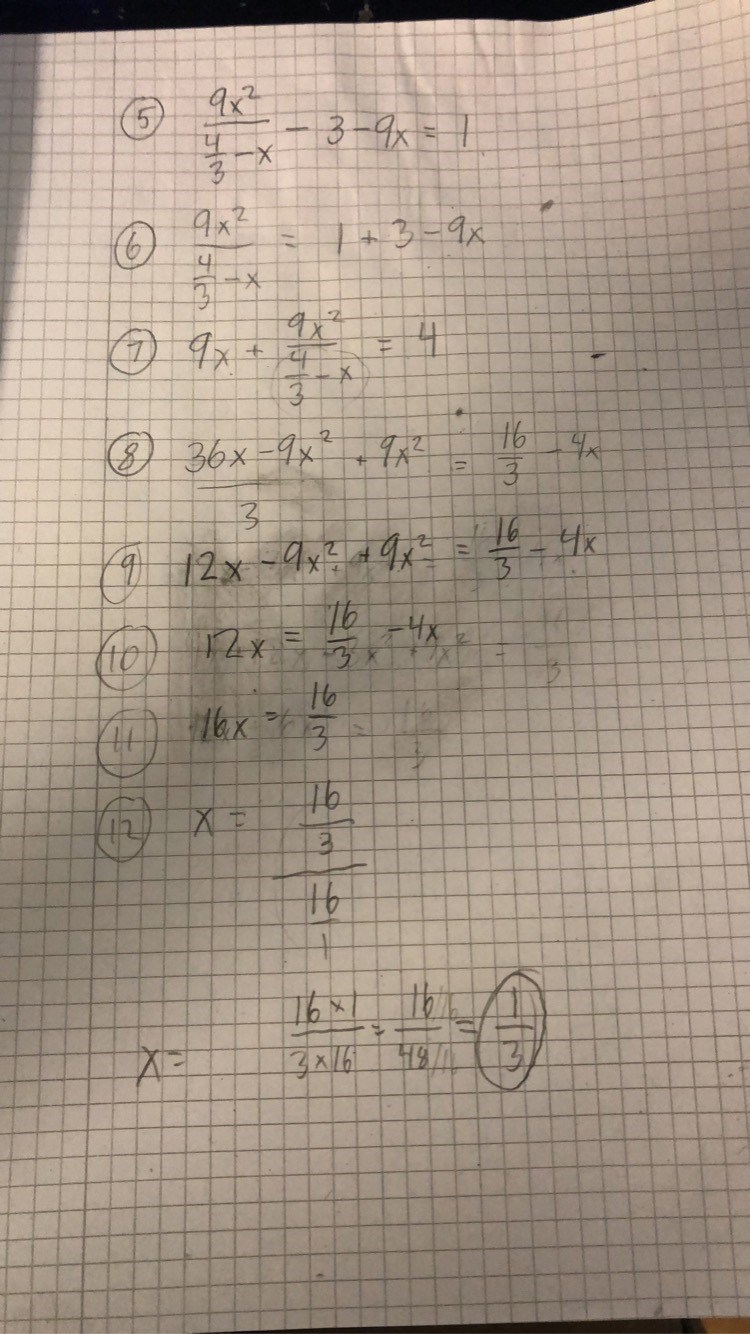 ⑤ 9x²/(4/3 - x) - 3 - 9x = 1
⑥ 9x²/(4/3 - x) = 1 + 3 - 9x
⑦ 9x + 9x²/(4/3 - x) = 4
⑧ (36x - 9x²)/3 + 9x² = 16/3 - 4x
⑨ 12x - 9x² + 9x² = 16/3 - 4x
⑩ 12x = 16/3 - 4x
⑪ 16x = 16/3
⑫ x = (16/3)/(16/1)
x = (16×1)/(3×16) = (16/16)/(48/16) = 1/3